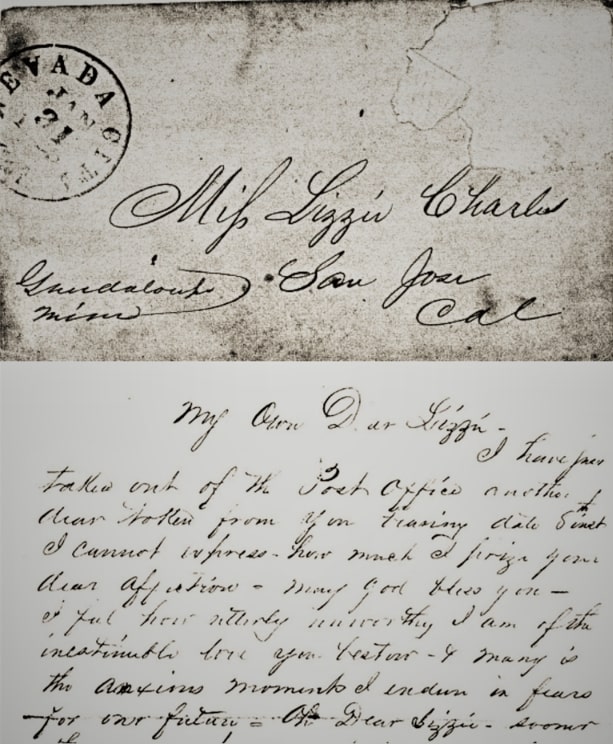 NEVADA CITY
JAN
31
Miss Lizzie Charles
San Jose
Cal
Guadaloupe
mine
My Own Dear Lizzie -
I have just
taken out of the Post Office another
dear token from you bearing date 5th inst
I cannot express - how much I prize your
dear affection - may God bless you -
I feel how utterly unworthy I am of the
inestimable love you bestow - & many is
the anxious moments I endure in fears
for our future - Oh Dear Lizzie - sooner